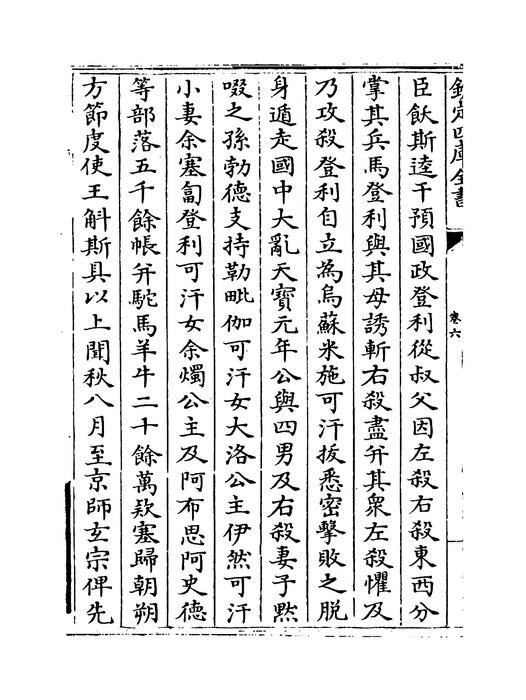 欽定四庫全書
卷六
臣飫斯達干預國政登利從叔父因左殺右殺東西分
掌其兵馬登利與其母誘斬右殺盡并其衆左殺懼及
乃攻殺登利自立為烏蘇米施可汗拔悉密擊敗之脱
身遁走國中大亂天寶元年公與四男及右殺妻子黙
啜之孫勃德支持勒毗伽可汗女大洛公主伊然可汗
小妻余塞匐登利可汗女余燭公主及阿布思阿史德
等部落五千餘帳并駝馬羊牛二十餘萬欵塞歸朝朔
方節度使王斛斯具以上聞秋八月至京師玄宗俾先